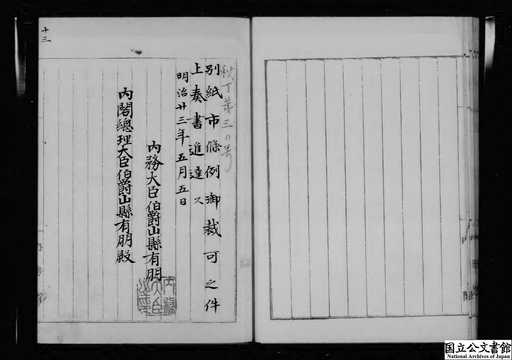 別紙市條例御裁可之件
上奏書進達ス
明治廿三年五月五日
内務大臣伯爵山縣有朋
内閣總理大臣伯爵山縣有朋殿
十三
国立公文書館
National Archives of Japan